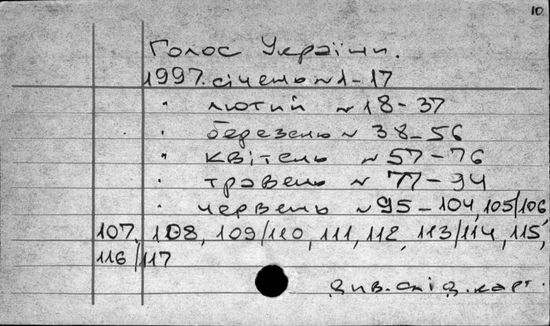 10
Голос України.
1997. січень №1-17
" лютий №18-37
" березень №38-56
" квітень №57-76
" травень №77-94
" червень №95-104, 105/106,
107, 108, 109/110, 111, 112, 113/114, 115,
116/117
див. слід. карт.